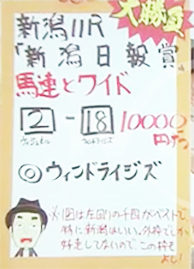 大勝負
新潟11R
「新潟日報賞」
馬連とワイド
2-18 10000円ずつ
◎ウィンドライジズ
※(図)は左回りの千四がベストで、
特に新潟はいい。外枠でしか
好走してないので、この枠も
よし！